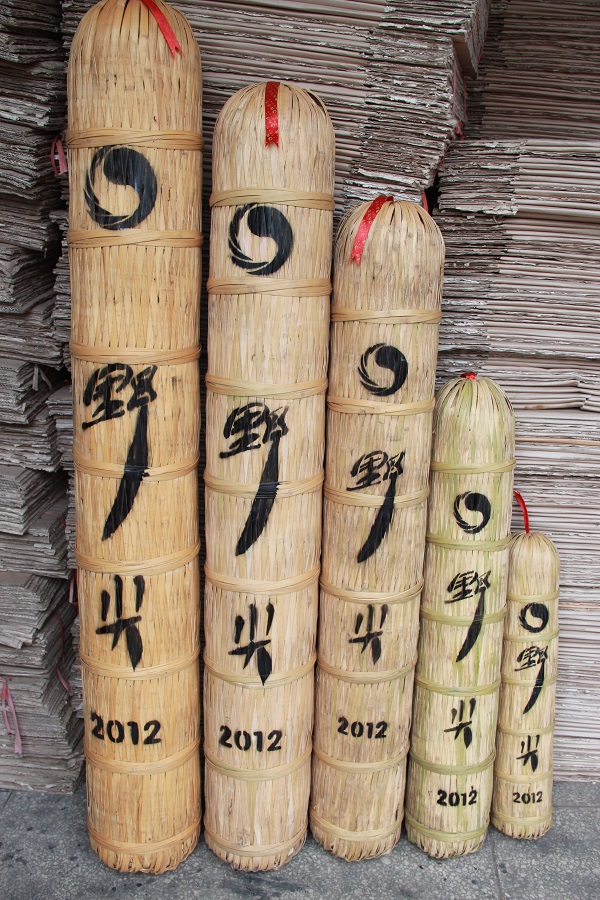 野尖
2012
野尖
2012
野尖
2012
野尖
2012
野尖
2012